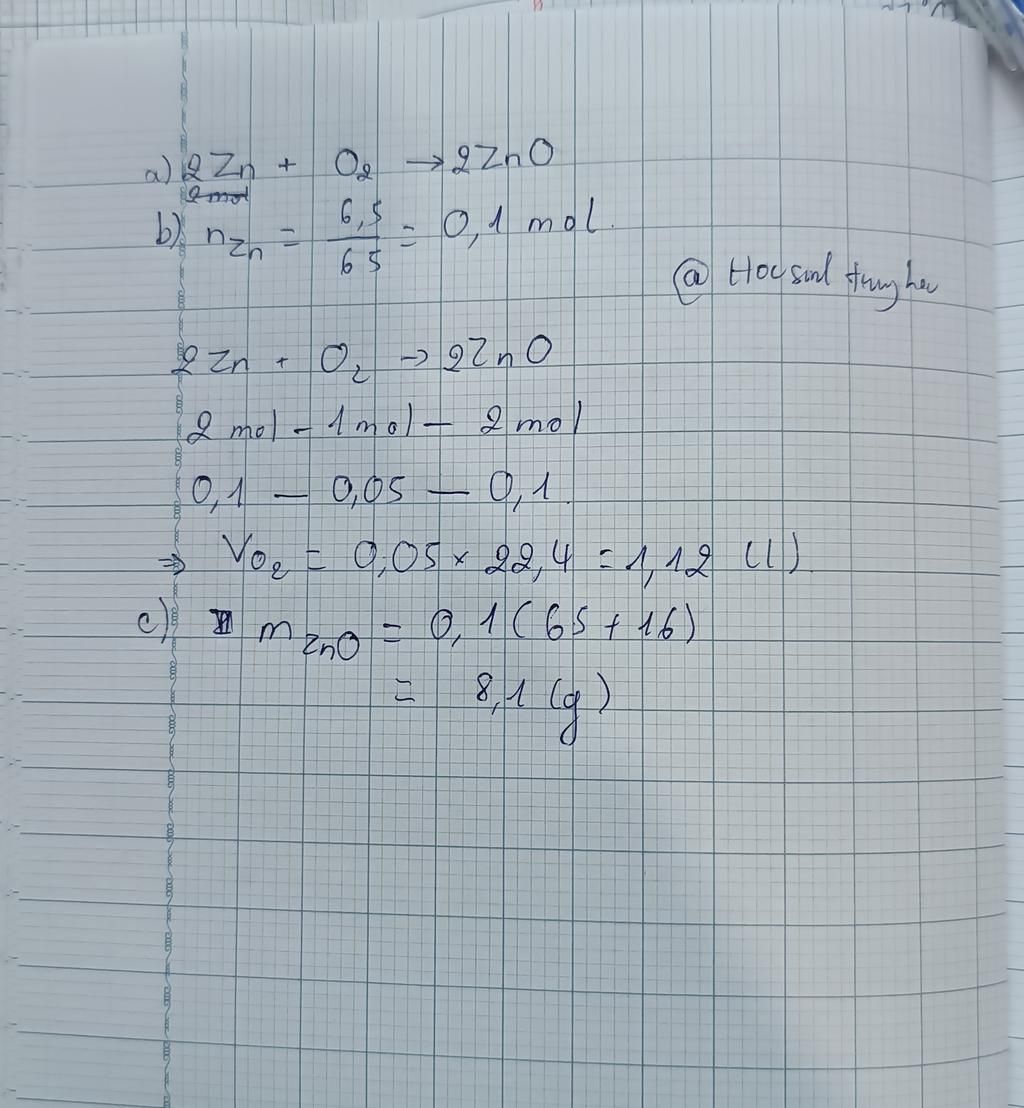 a) 2Zn + O₂ → 2ZnO
2 mol
b) nZn = 6,5/65 = 0,1 mol.
@ Hocsinh
2Zn + O₂ → 2ZnO
2 mol – 1 mol – 2 mol
0,1 — 0,05 — 0,1
⇒ VO₂ = 0,05 × 22,4 = 1,12 (l).
c) mZnO = 0,1 (65 + 16)
= 8,1 (g)